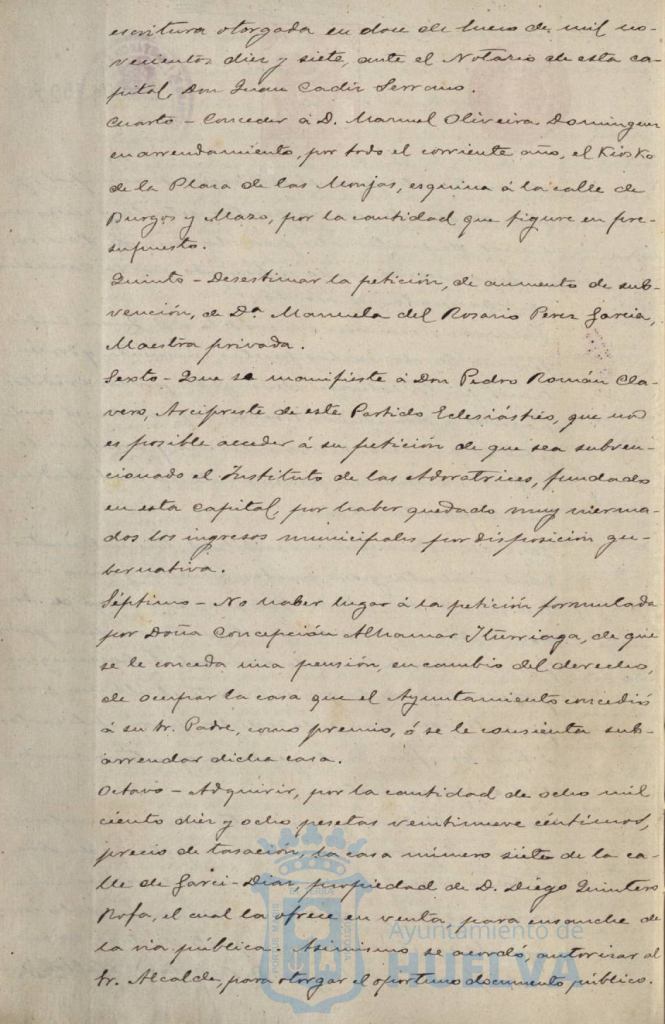 escritura otorgada en doce de Enero de mil no-
vecientos diez y siete, ante el Notario de esta ca-
pital, Don Juan Cadiz Serrano.
Cuarto - Conceder á D. Manuel Oliveira Dominguez
en arrendamiento, por todo el corriente año, el Kiosko
de la Plaza de las Monjas, esquina á la calle de
Burgos y Mazo, por la cantidad que figure en pre-
supuesto.
Quinto - Desestimar la petición, de aumento de sub-
vención, de Dª Manuela del Rosario Perez Garcia,
Maestra privada.
Sexto - Que se manifieste á Don Pedro Román Cla-
vero, Arcipreste de este Partido Eclesiástico, que no
es posible acceder á su petición de que sea subven-
cionado el Instituto de las Adoratrices, fundado
en esta Capital, por haber quedado muy merma-
dos los ingresos municipales por disposición gu-
bernativa.
Séptimo - No haber lugar á la petición formulada
por Doña Concepción Alhamar Iturriaga, de que
se le conceda una pensión, en cambio del derecho,
de ocupar la casa que el Ayuntamiento concedió
á su Sr. Padre, como premio, ó se le consienta sub-
arrendar dicha casa.
Octavo - Adquirir, por la cantidad de ocho mil
ciento diez y ocho pesetas veintinueve céntimos,
precio de tasación, la casa número siete de la ca-
lle de Garci-Diaz, propiedad de D. Diego Quintero
Rofa, el cual la ofrece en venta, para ensanche de
la via pública. Asimismo se acordó, autorizar al
Sr. Alcalde, para otorgar el oportuno documento público.
Ayuntamiento de
HUELVA